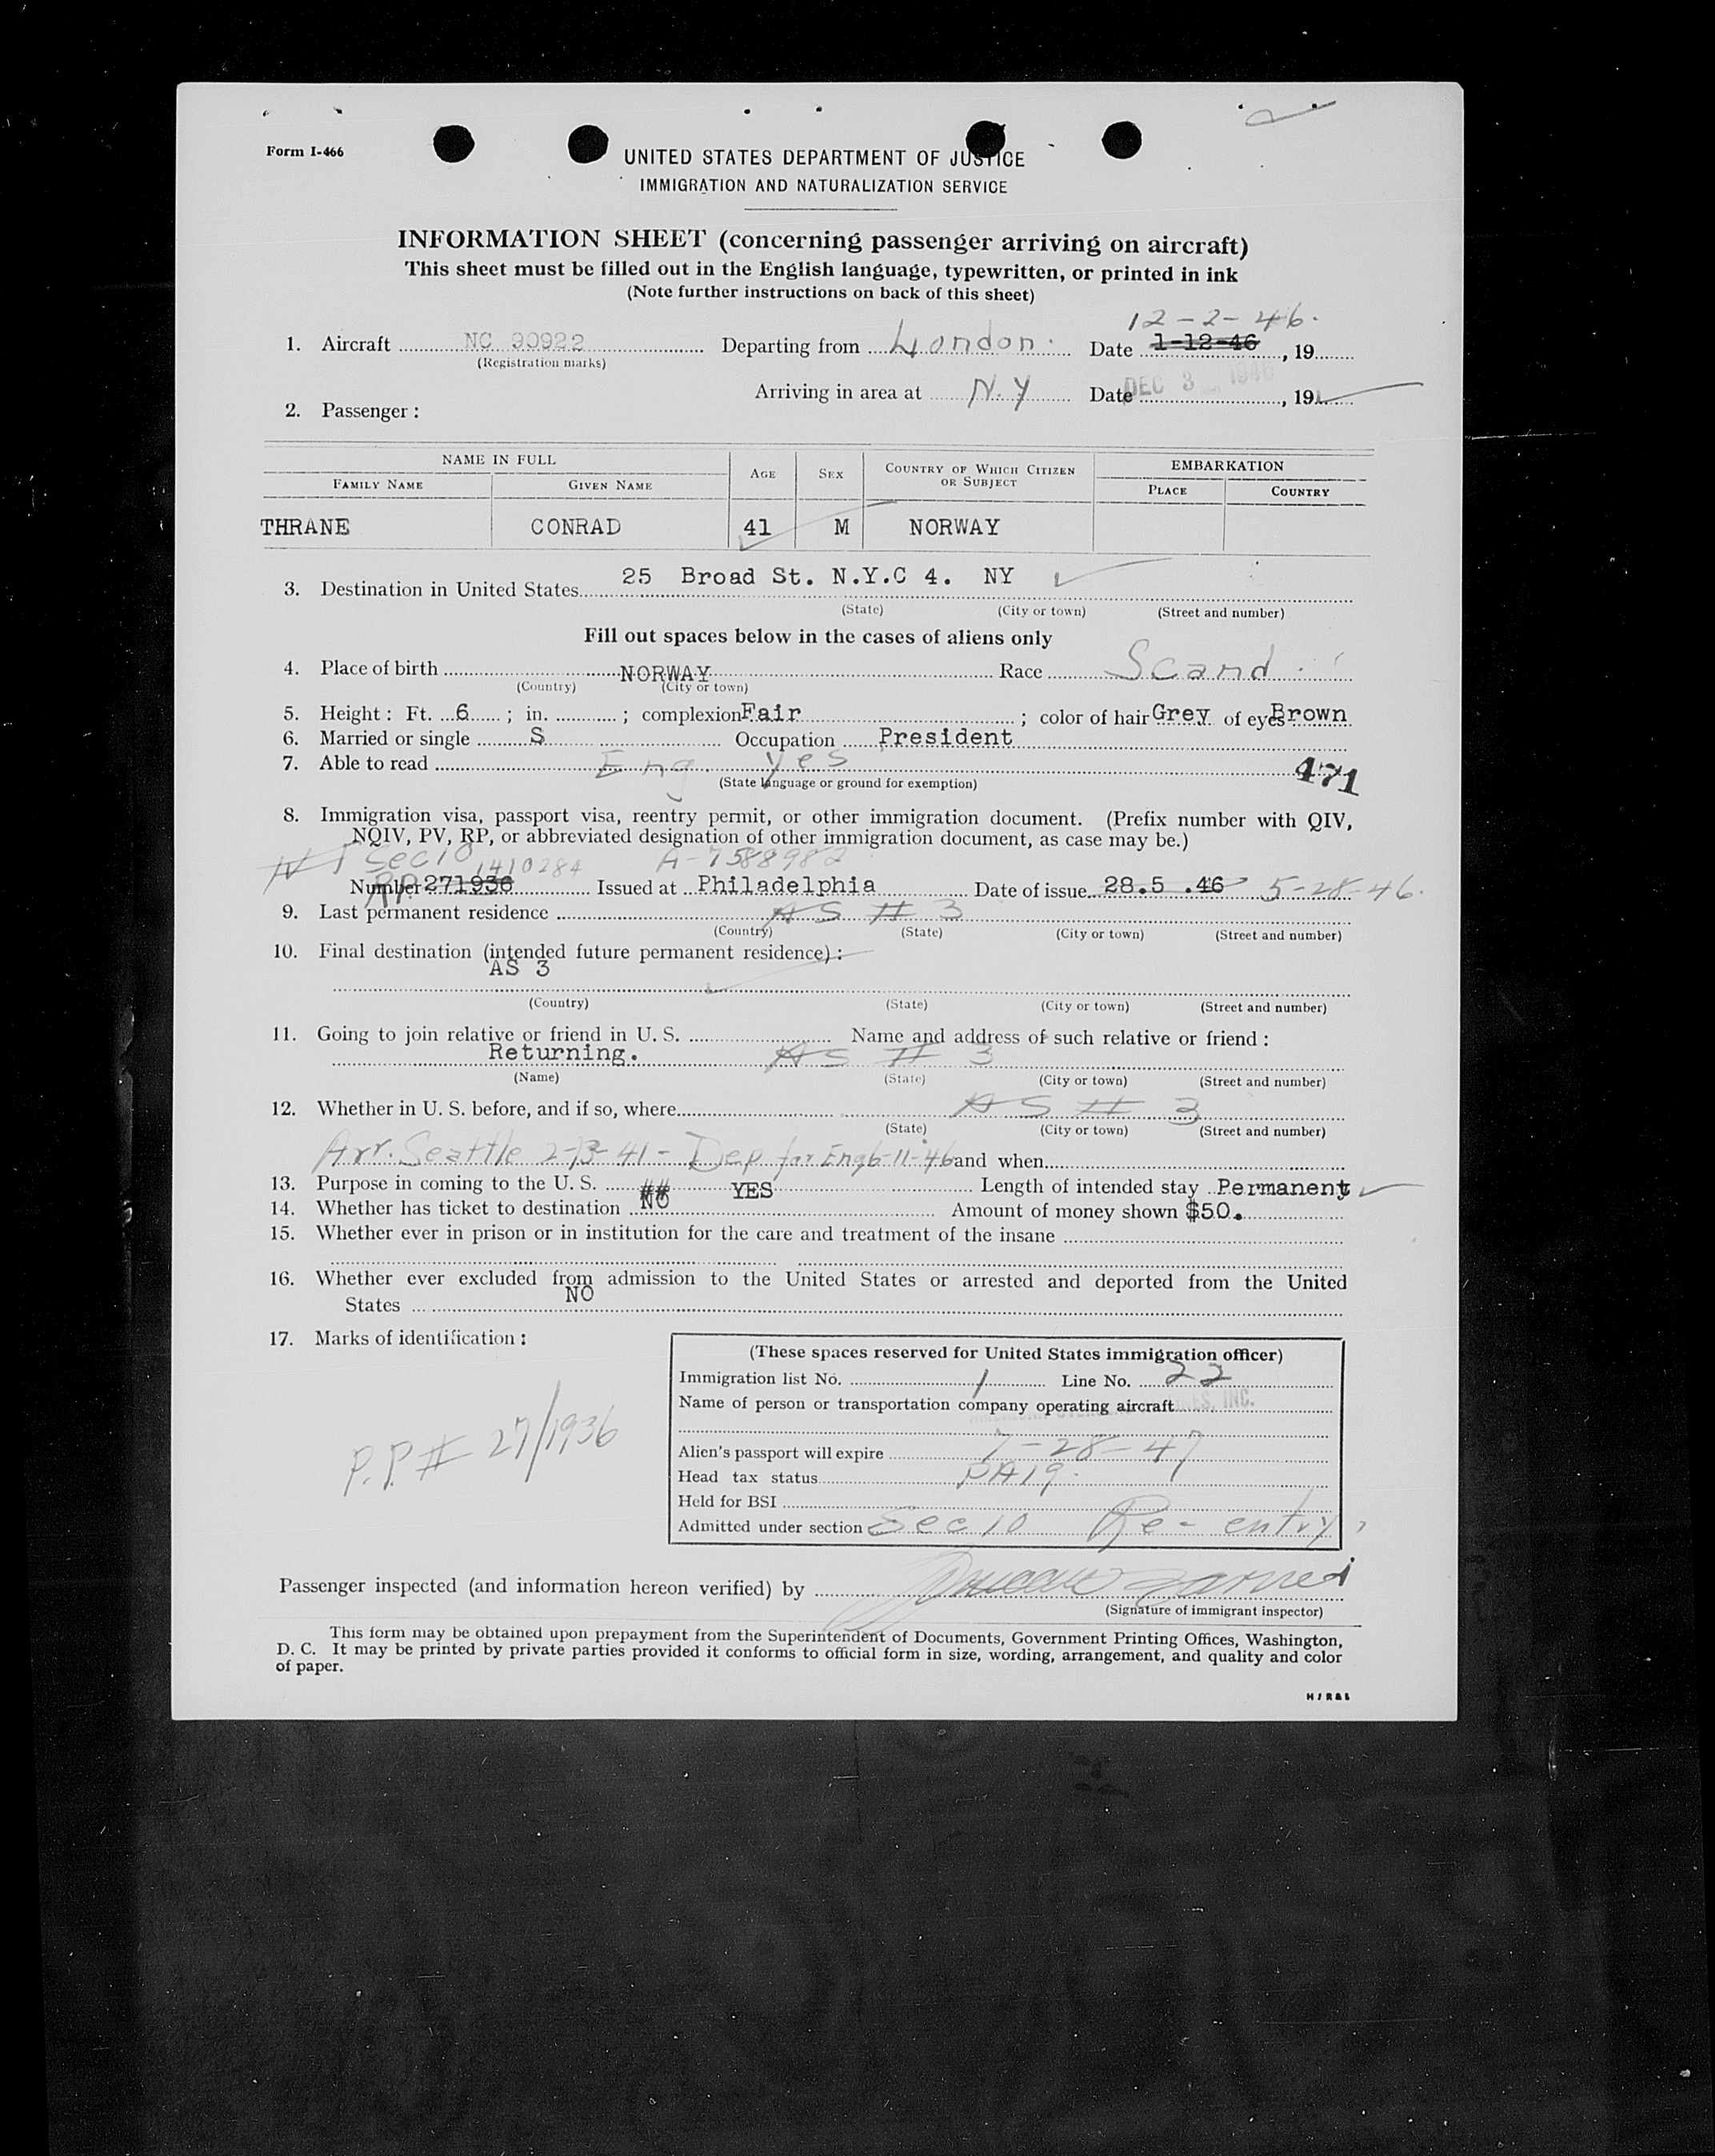 Form I-466
UNITED STATES DEPARTMENT OF JUSTICE
IMMIGRATION AND NATURALIZATION SERVICE
INFORMATION SHEET (concerning passenger arriving on aircraft)
This sheet must be filled out in the English language, typewritten, or printed in ink
(Note further instructions on back of this sheet)
12-2-46.
1. Aircraft NC 90922 Departing from London. Date 1-12-46, 19
(Registration marks)
Arriving in area at N.Y Date DEC 3 1946, 19
2. Passenger:
NAME IN FULL EMBARKATION
FAMILY NAME GIVEN NAME AGE SEX COUNTRY OF WHICH CITIZEN OR SUBJECT PLACE COUNTRY
THRANE CONRAD 41 M NORWAY
3. Destination in United States 25 Broad St. N.Y.C 4. NY
(State) (City or town) (Street and number)
Fill out spaces below in the cases of aliens only
4. Place of birth NORWAY Race Scand.
(Country) (City or town)
5. Height: Ft. 6; in. ; complexion Fair; color of hair Grey of eyes Brown
6. Married or single S Occupation President
7. Able to read Eng. Yes
(State language or ground for exemption)
471
8. Immigration visa, passport visa, reentry permit, or other immigration document. (Prefix number with QIV,
NQIV, PV, RP, or abbreviated designation of other immigration document, as case may be.)
Sec 10 1410284 A-7588982
Number RP 271936 Issued at Philadelphia Date of issue 28.5 .46 5-28-46.
9. Last permanent residence AS # 3
(Country) (State) (City or town) (Street and number)
10. Final destination (intended future permanent residence):
AS 3
(Country) (State) (City or town) (Street and number)
11. Going to join relative or friend in U. S. Name and address of such relative or friend:
Returning. AS # 3
(Name) (State) (City or town) (Street and number)
12. Whether in U. S. before, and if so, where AS # 3
(State) (City or town) (Street and number)
Arr. Seattle 2-13-41 - Dep for Eng 6-11-46 and when
13. Purpose in coming to the U. S. ## YES Length of intended stay Permanent
14. Whether has ticket to destination NO Amount of money shown $50.
15. Whether ever in prison or in institution for the care and treatment of the insane
16. Whether ever excluded from admission to the United States or arrested and deported from the United
States NO
17. Marks of identification:
P.P. # 27/1936
(These spaces reserved for United States immigration officer)
Immigration list No. 1 Line No. 22
Name of person or transportation company operating aircraft INC.
Alien's passport will expire 7-28-47
Head tax status PA19.
Held for BSI
Admitted under section Sec 10 Re-entry
Passenger inspected (and information hereon verified) by
(Signature of immigrant inspector)
This form may be obtained upon prepayment from the Superintendent of Documents, Government Printing Offices, Washington,
D. C. It may be printed by private parties provided it conforms to official form in size, wording, arrangement, and quality and color
of paper.